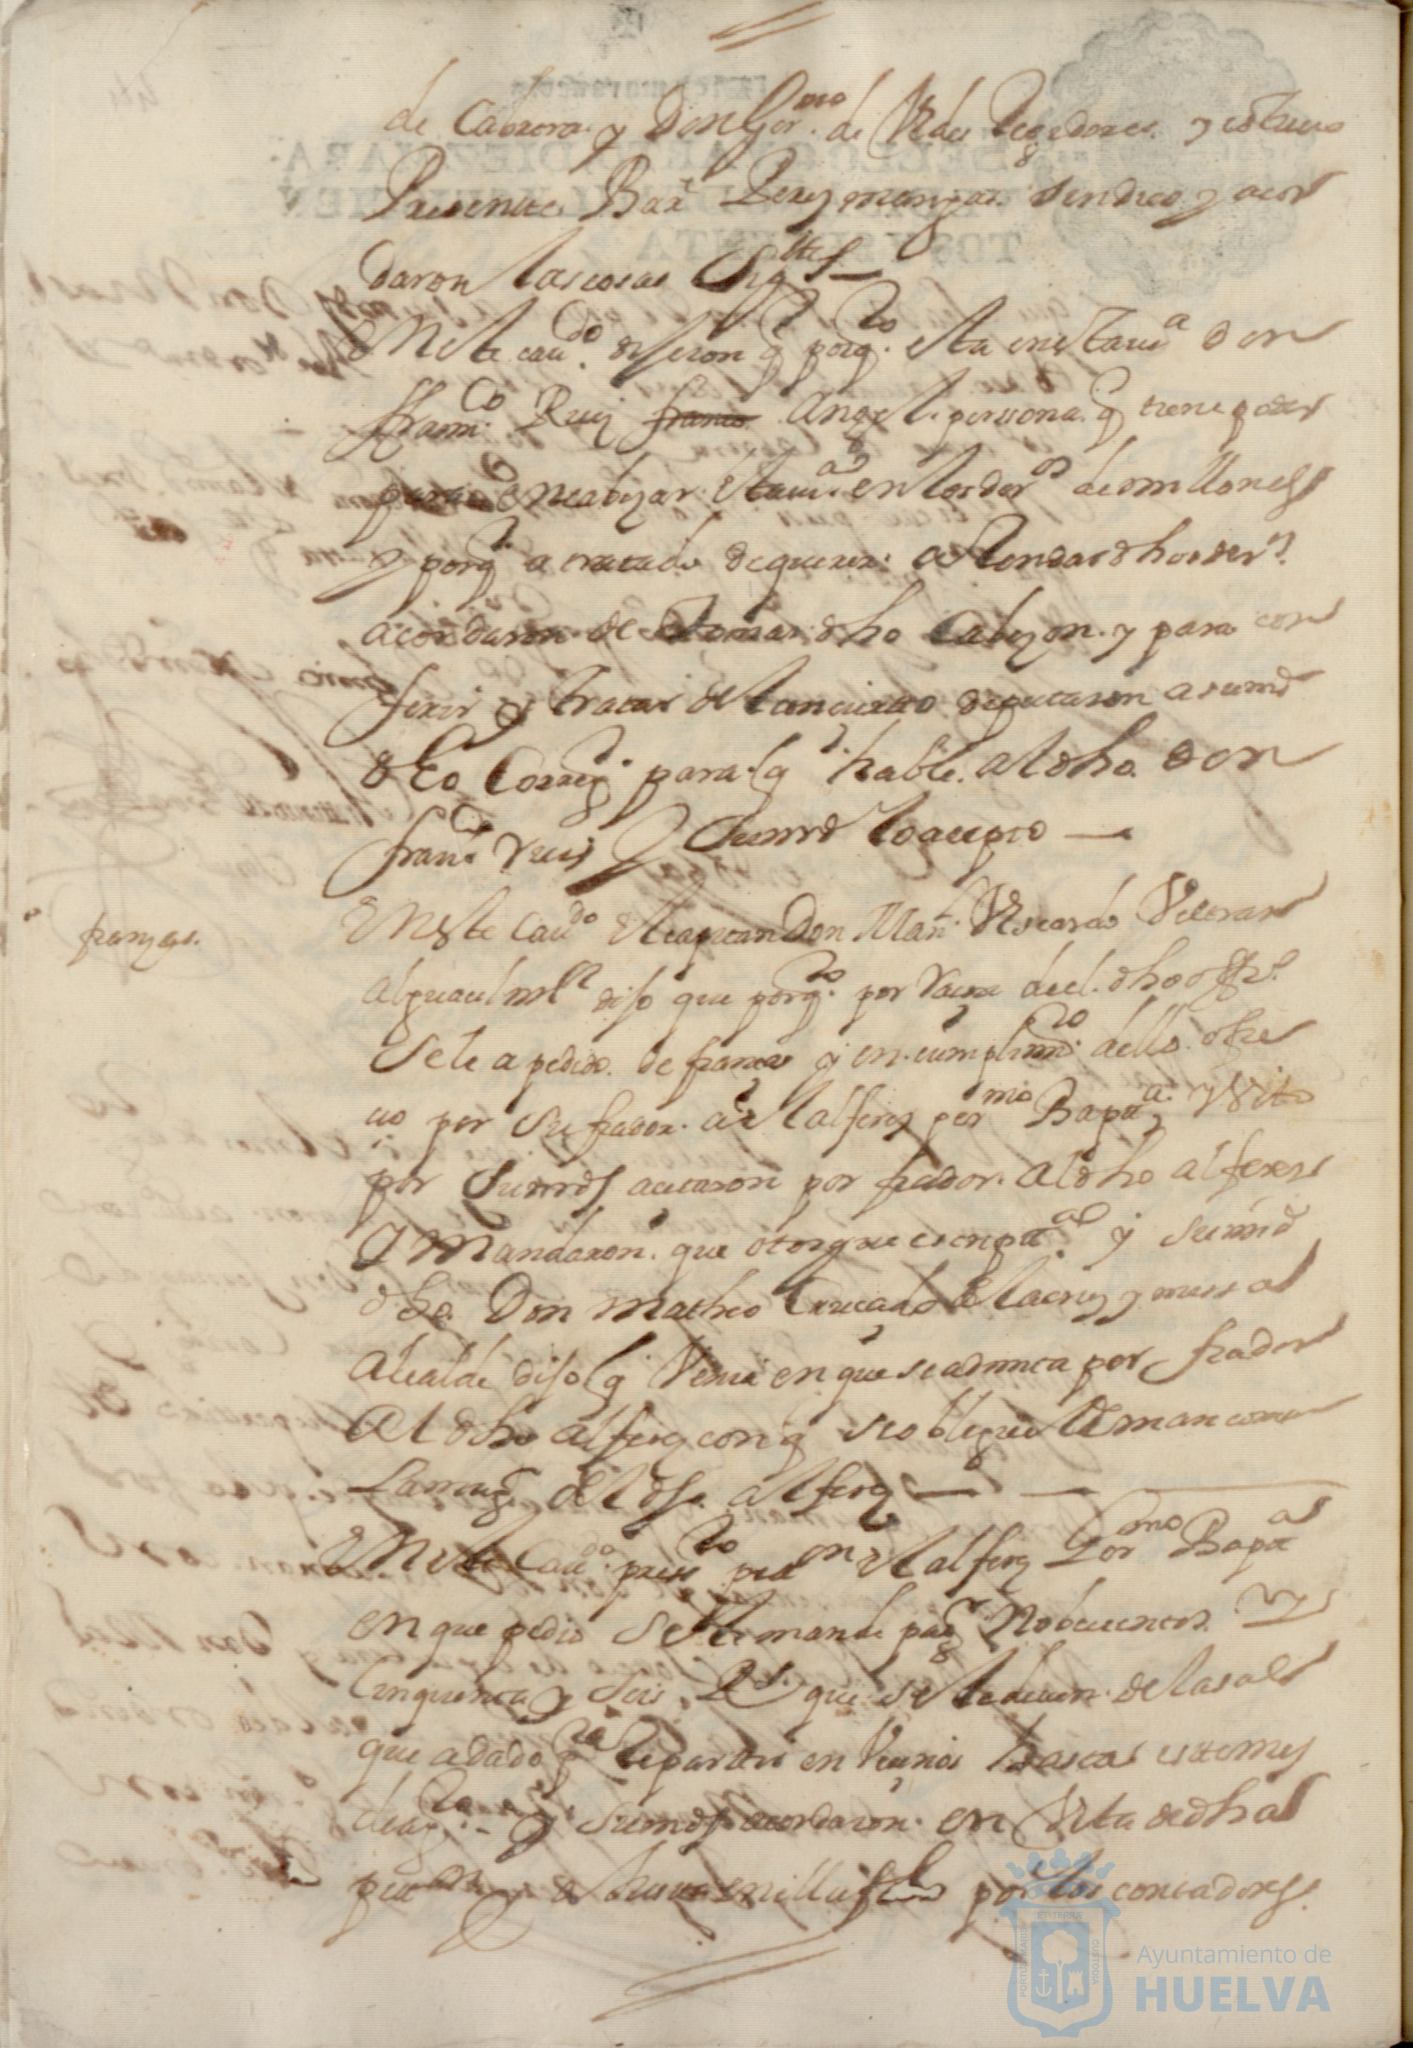 de Cabrera y Don Ger.mo de Vides Regidores y estuvo
Presente Bar.e Perez mangas sindico y acor
daron las cosas sig.tes
En este cau.do dixeron q porq.to esta en esta u.a don
fran.co Ruiz Angel persona q tiene poder
para encabezar esta u.a en los der.os de millones
y porq a tratado de querer arrendar dhos der.os
acordaron de tomar dho Cabezon y para con
ferir y tratar el conzierto deputaron a su md
el s.o Correg.r para q hable al dho don
fran.co Ruis y su md lo acepto
fianzas.
En este Cau.do el capitan Don Man.l Vscardo Veteran
alguacil m.r dixo que porq.to por racon del dho off.o
se le a pedido de fianza y en cumplim.to dello ofre
cio por su fiador al alferez Ger.mo Bap.ta y visto
por sus mds acetaron por fiador al dho alferez
y mandaron que otorgue escript.a y su md
dho Don Matheo Trucado de la cruz y
alcalde dixo q venia en que se admita por fiador
al dho alferez con q se obligue de mancomun
la mug.r del dho alferez
En este Cau.do pres.to pet.on el alferez Ger.mo Bap.ta
en que pidio se le mande pag.r Nobecientos y
cinquenta y seis R.s que se le deuen de la sal
que a dado p.a repartir en vecinos hasta este mes
de ag.to y sus mds acordaron en vista de dha
pet.on por los contadores
Ayuntamiento de
HUELVA